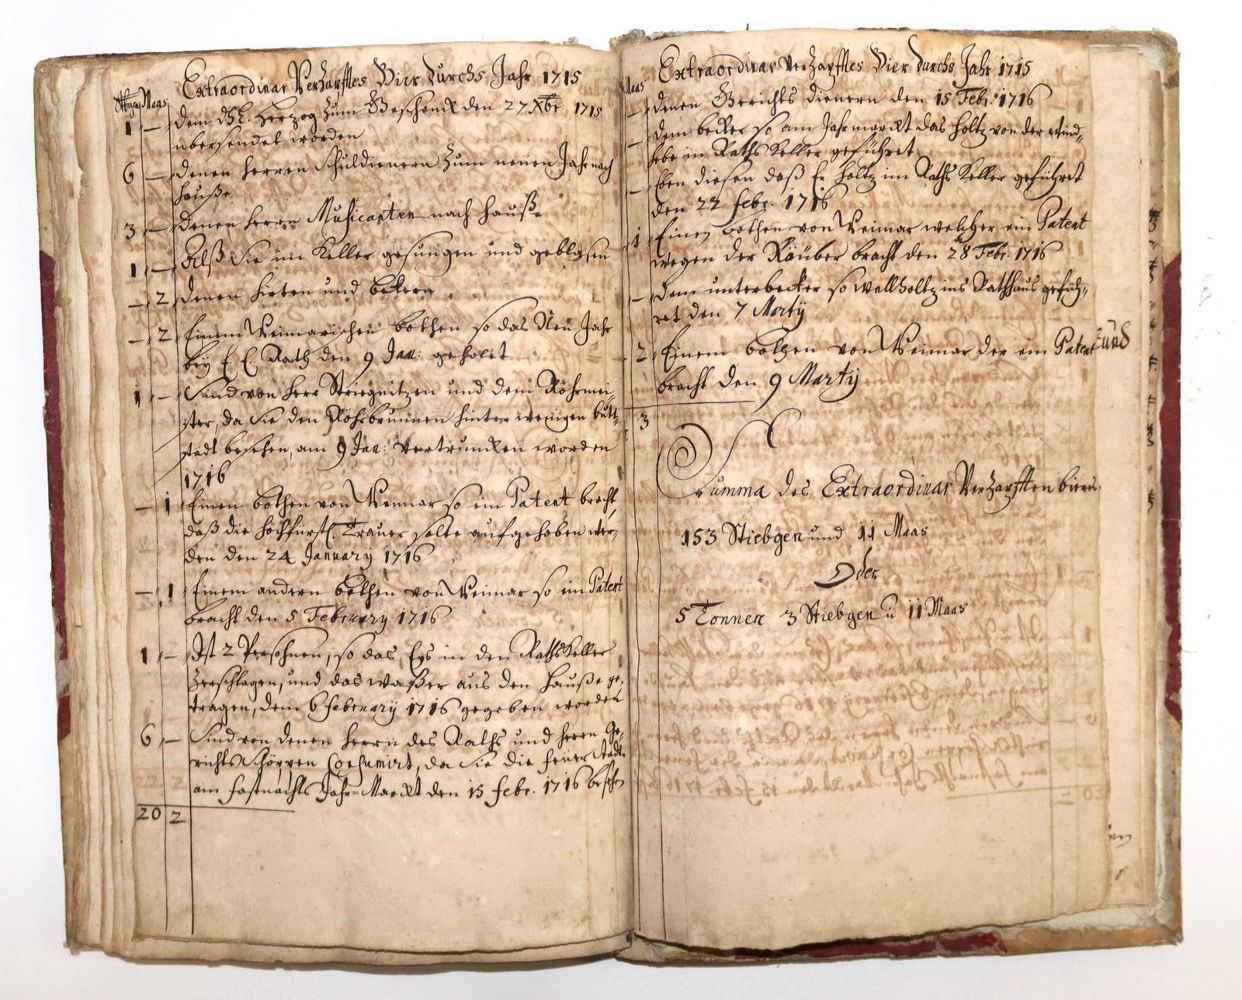 Extraordinar Verzapfftes Bier durchs Jahr 1715
Maas
1 — dem Herzog zum Geschenck den 27 Xbr. 1715
übersendet worden
6 — denen Herren Schuldienern zum neuen Jahr nach
Hauße
3 — denen Herrn Musicanten nach Hauß
1 — Alß Sie im Keller gesungen und geblasen
— 2 denen Hirten und
— 2 Einem Weimarischen Bothen so das Neu Jahr
bey E. E. Rath den 9 Jan: gehohlt
1 — Sind von Herr und dem Röhrmei-
ster, da Sie den Röhrbrunnen hinter wenigen Butt-
stadt besehen, am 9 Jan: vertruncken worden
1716
— 1 Einen Bothen von Weimar so ein Patent bracht,
daß die Hochfürstl. Trauer solte aufgehoben wer-
den den 24 January 1716
— 1 Einem andern Bothen von Weimar so ein Patent
bracht den 5 February 1716
1 — Ist 2 Persohnen, so das Eys in den RathsKeller
zerschlagen, und das waßer aus den Hauße ge-
tragen, dem 6 February 1716 gegeben worden
6 — Sind von denen Herrn des Raths und Herrn Ge-
richts Schöppen Consumirt, da Sie die
am Fastnachts Jahr-Marckt den 15 Febr. 1716 besehen
20 2
Extraordinar Verzapfftes Bier durchs Jahr 1715
Maas
— denen Gerichts dienern den 15 Febr. 1716
— dem becker so am Jahrmarckt das Holtz von der
in Raths Keller geführet
— Eben diesen daß E. Holtz im Raths Keller geführet
den 22 Febr. 1716
1 Einen Bothen von Weimar welcher ein Patent
wegen der Räuber bracht den 28 Febr 1716
— dem unterbecker so wellholtz ins Rathhaus gefüh-
ret den 7 Marty
2 Einem Bothen von Weimar der ein Patent
bracht den 9 Marty
3
Summa des Extraordinar Verzapfften biers.
153 Stiebgen und 11 Maas
Oder
5 Tonnen 3 Stiebgen u 11 Maas
und